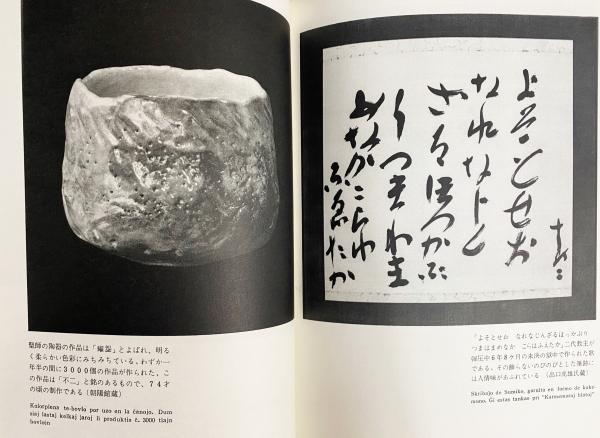 聖師の陶器の作品は「耀盌」とよばれ、明る
く柔らかい色彩にみちみちている。わずか一
年半の間に3000個の作品が作られた。こ
の作品は「不二」と銘のあるもので、74才
の頃の制作である（朝陽館蔵）
Kolorplena te-bovlo por uzo en la ĉenojo. Dum
siaj lastaj kelkaj jaroj li produktis ĉ. 3000 tiajn
bovlojn
よそとせお
なれなじん
ざるほつかぶ
りつまわま
めなかこらわ
ふゑたか
「よそとせお　なれなじんざるほっかぶり
つまはまめなか　こらはふえたか」二代教主が
弾圧中6年8ケ月の未決の獄中で作られた歌
である。その飾らないのびのびとした筆跡に
は人情味があふれている
Skribaĵo de Sumiko, garnita en formo de kake-
mono. Ĝi estas tankao pri